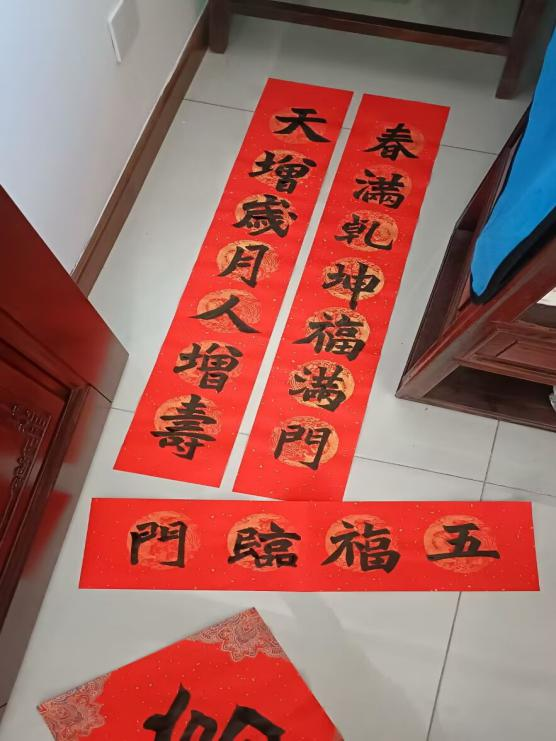 天增歲月人增壽
春滿乾坤福滿門
五福臨門